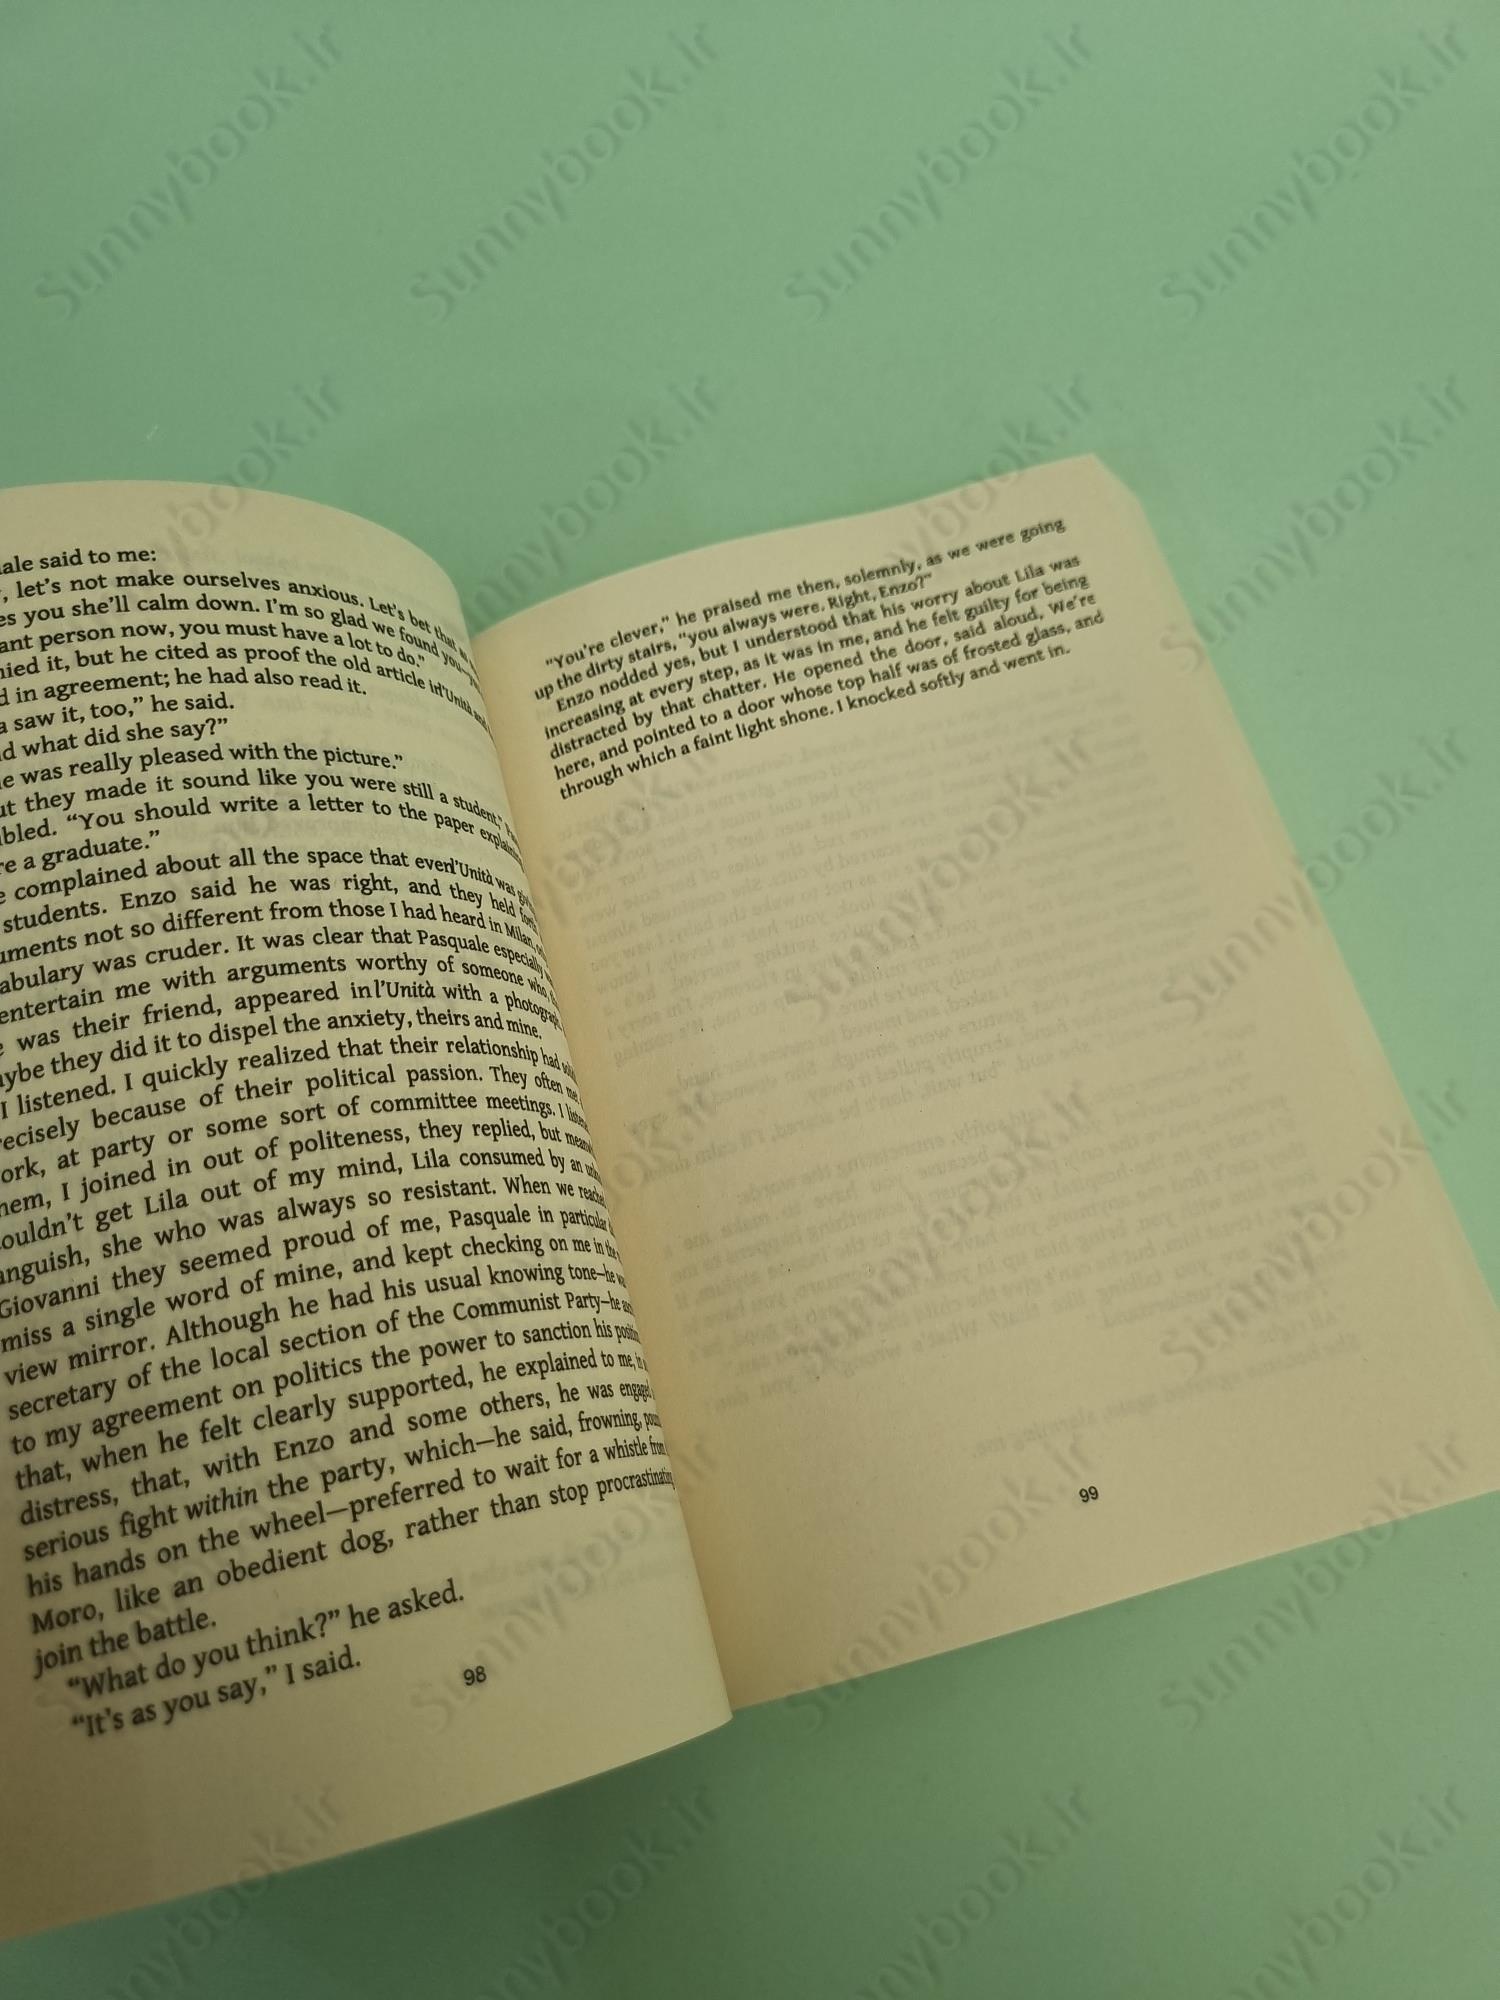 ale said to me:
, let's not make ourselves anxious. Let's bet that as
es you she'll calm down. I'm so glad we found you—
ant person now, you must have a lot to do."
nied it, but he cited as proof the old article in l'Unità and
d in agreement; he had also read it.
a saw it, too," he said.
d what did she say?"
e was really pleased with the picture."
ut they made it sound like you were still a student,"
bled. "You should write a letter to the paper explaining
re a graduate."
e complained about all the space that even l'Unità was
students. Enzo said he was right, and they held forth
uments not so different from those I had heard in Milan,
abulary was cruder. It was clear that Pasquale especially
entertain me with arguments worthy of someone who,
e was their friend, appeared in l'Unità with a photograph.
ybe they did it to dispel the anxiety, theirs and mine.
I listened. I quickly realized that their relationship had
recisely because of their political passion. They often met
ork, at party or some sort of committee meetings. I listened
hem, I joined in out of politeness, they replied, but
ouldn't get Lila out of my mind, Lila consumed by an
anguish, she who was always so resistant. When we reached
Giovanni they seemed proud of me, Pasquale in particular
miss a single word of mine, and kept checking on me in the
view mirror. Although he had his usual knowing tone—he was
secretary of the local section of the Communist Party—he
to my agreement on politics the power to sanction his
that, when he felt clearly supported, he explained to me, in
distress, that, with Enzo and some others, he was engaged
serious fight within the party, which—he said, frowning,
his hands on the wheel—preferred to wait for a whistle from
Moro, like an obedient dog, rather than stop procrastinating
join the battle.
"What do you think?" he asked.
"It's as you say," I said.
98
"You're clever," he praised me then, solemnly, as we were going
up the dirty stairs, "you always were. Right, Enzo?"
Enzo nodded yes, but I understood that his worry about Lila was
increasing at every step, as it was in me, and he felt guilty for being
distracted by that chatter. He opened the door, said aloud, We're
here, and pointed to a door whose top half was of frosted glass, and
through which a faint light shone. I knocked softly and went in.
99
Sunnybook.ir